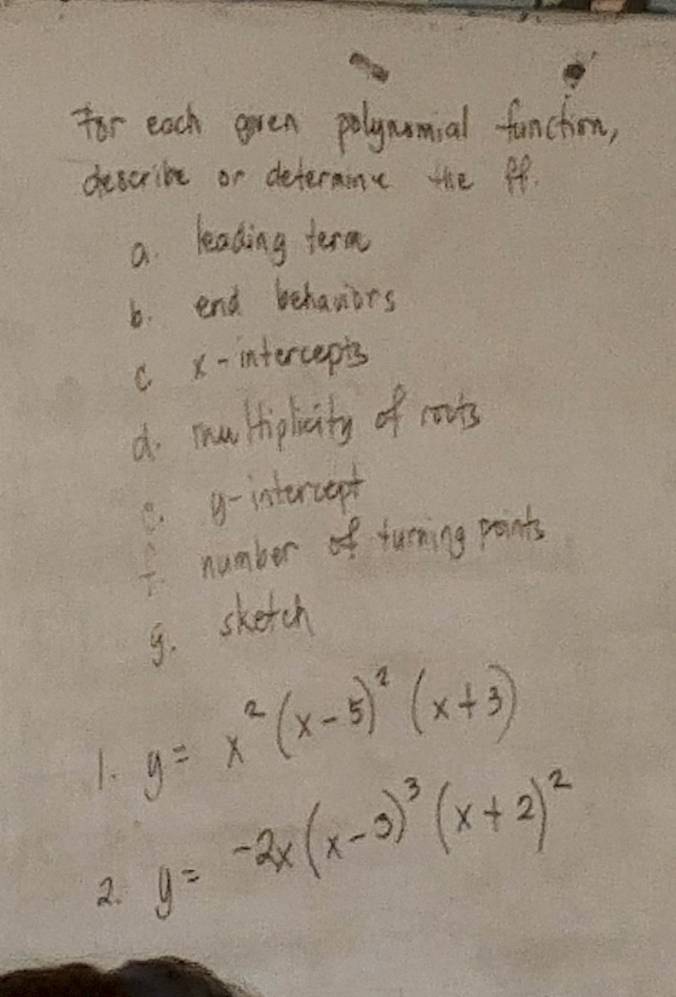 For each given polynomial function,
describe or determine the ff.
a. leading term
b. end behaviors
c x-intercepts
d. multiplicity of roots
e. y-intercept
f. number of turning points
g. sketch
1. y = x² (x-5)² (x+3)
2. y = -2x (x-3)³ (x+2)²